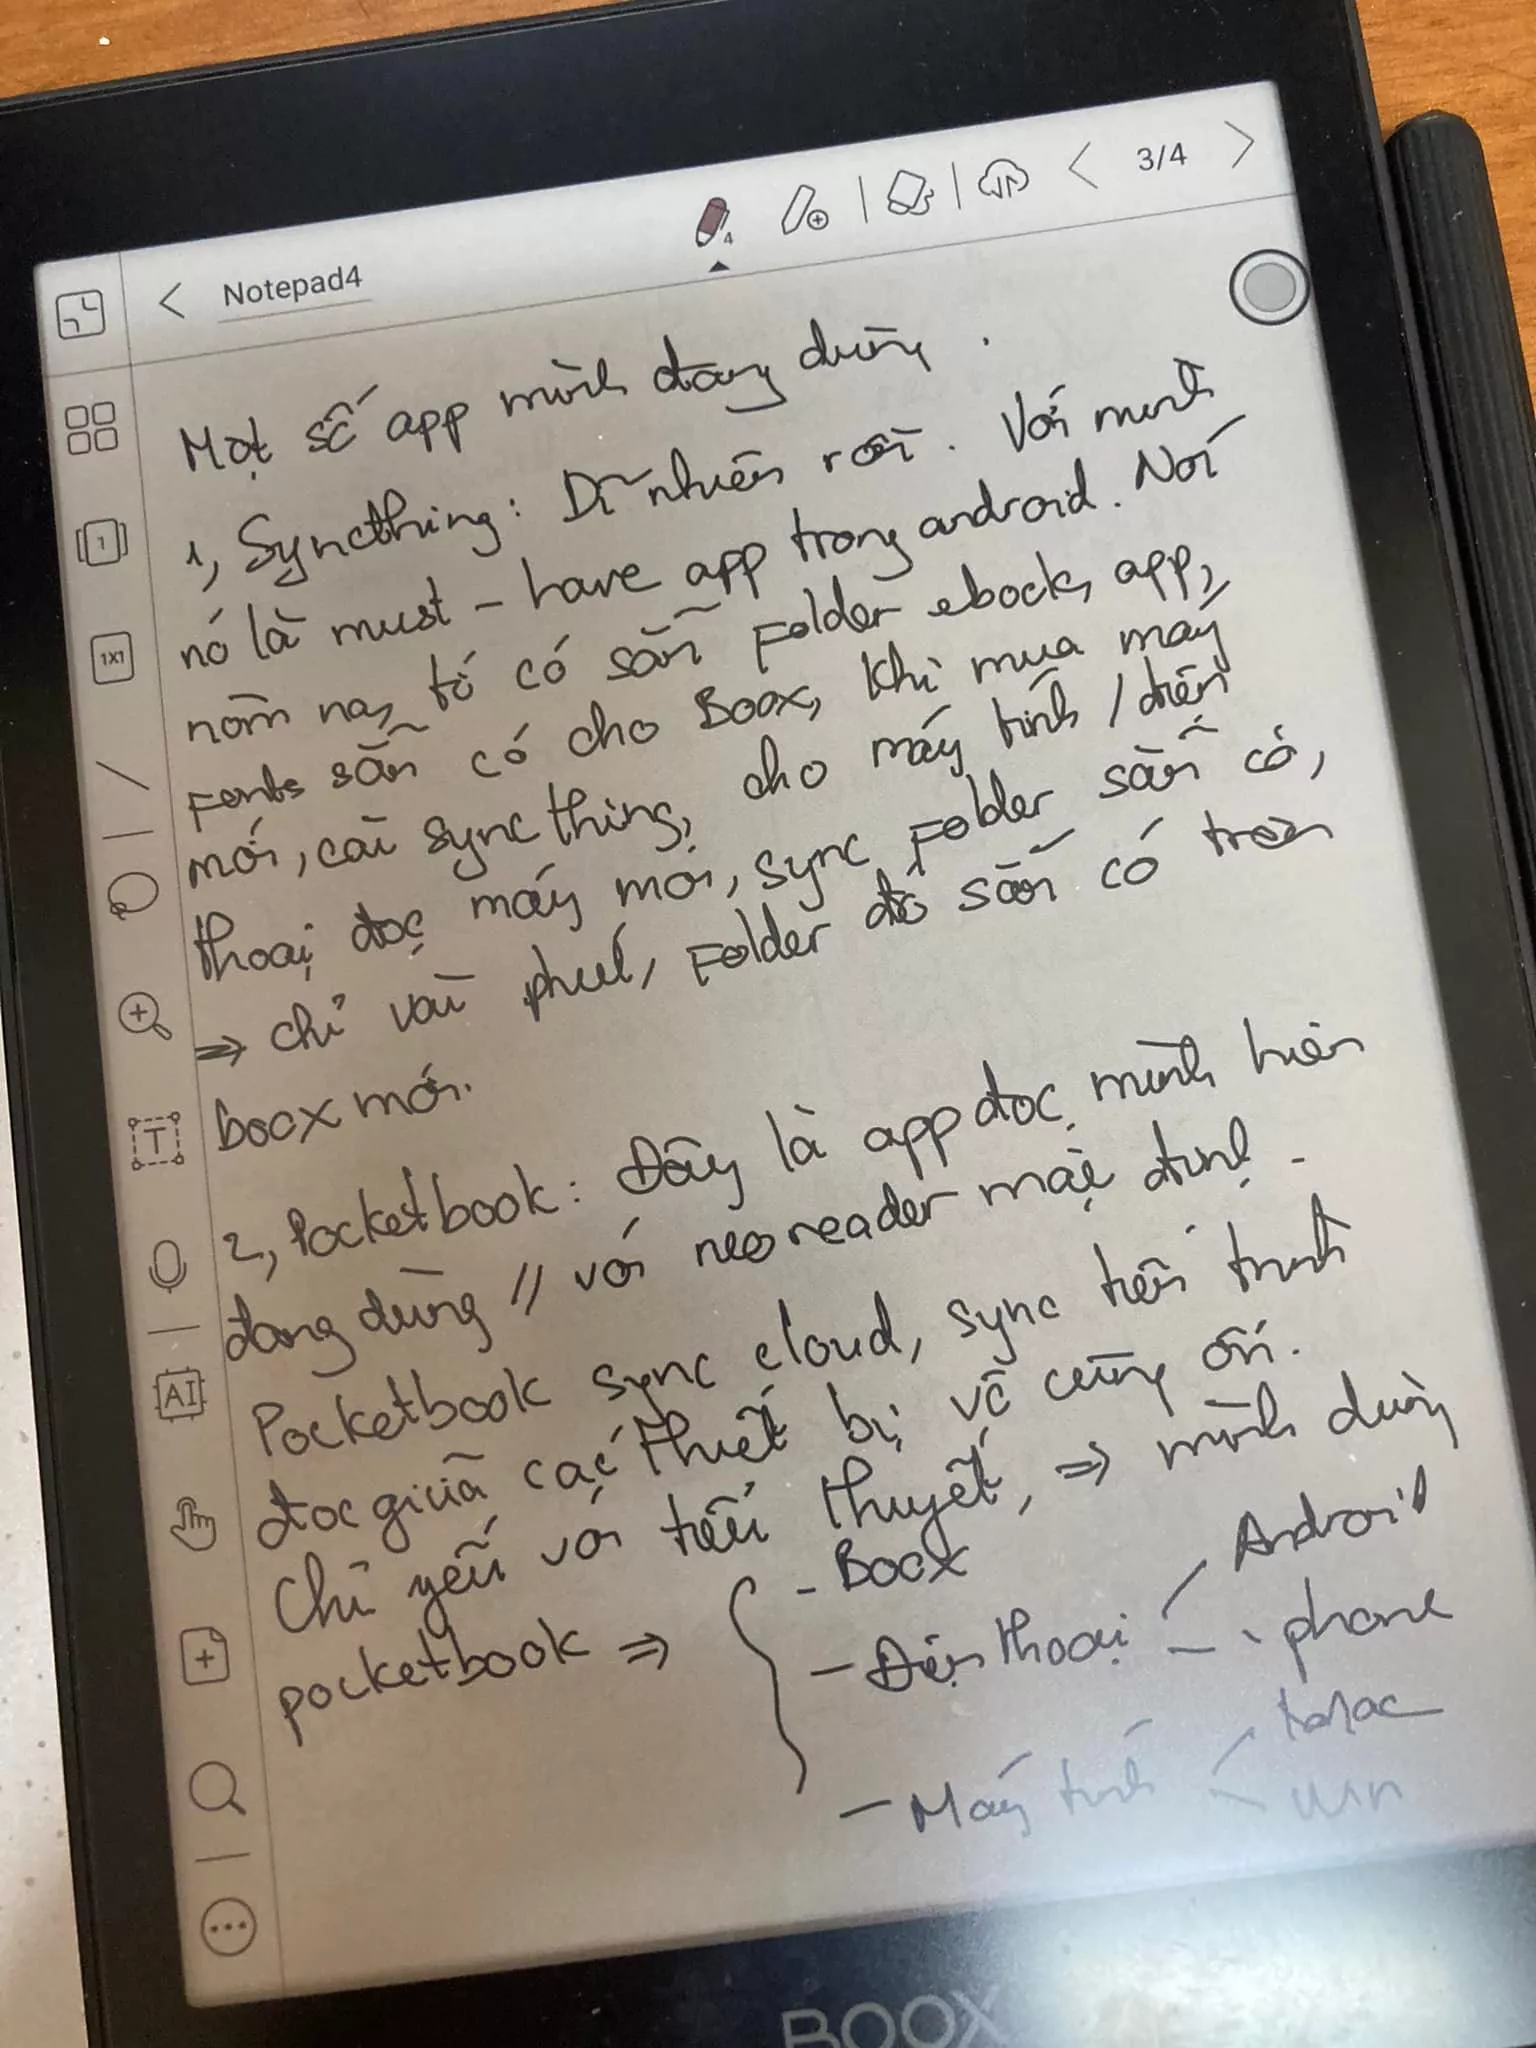 3/4
Notepad4
Một số app mình đang dùng.
1, Syncthing: Dĩ nhiên rồi. Với mình
nó là must-have app trong android. Nói
nôm na, tớ có sẵn Folder ebook, app,
Fonts sẵn có cho Boox, khi mua máy
mới, cài syncthing, cho máy tính/điện
thoại đọc máy mới, sync Folder sẵn có,
=> chỉ vài phút, Folder đó sẵn có trên
boox mới.
2, Pocketbook: Đây là app đọc mình hiện
đang dùng // với neoreader mặc định.
Pocketbook sync cloud, sync tiến trình
đọc giữa các thiết bị vô cùng ổn.
Chủ yếu với tiểu thuyết, => mình dùng
pocketbook =>
- Boox
- Điện thoại
Android
phone
- Máy tính
Mac
Win
1
1X1
T
AI
BOOX